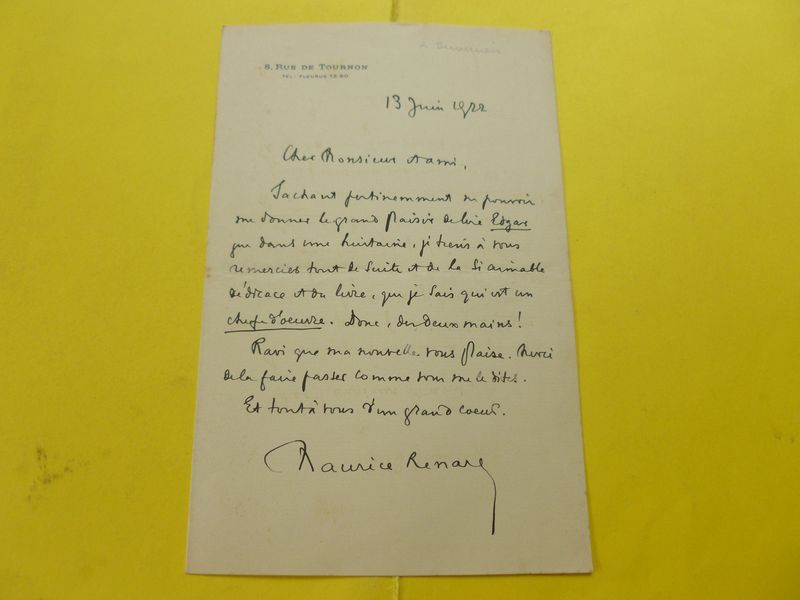 à Duvernois
8, RUE DE TOURNON
TEL: FLEURUS 12.90
13 Juin 1922
Cher Monsieur et ami,
Sachant pertinemment ne pouvoir
me donner le grand plaisir de lire Edgar
que dans une huitaine, je tiens à vous
remercier tout de suite et de la si aimable
dédicace et du livre, que je sais qui est un
chef d'oeuvre. Donc, des deux mains!
Ravi que ma nouvelle vous plaise. Merci
de la faire passer comme vous me le dites.
Et tout à vous d'un grand coeur.
Maurice Renard